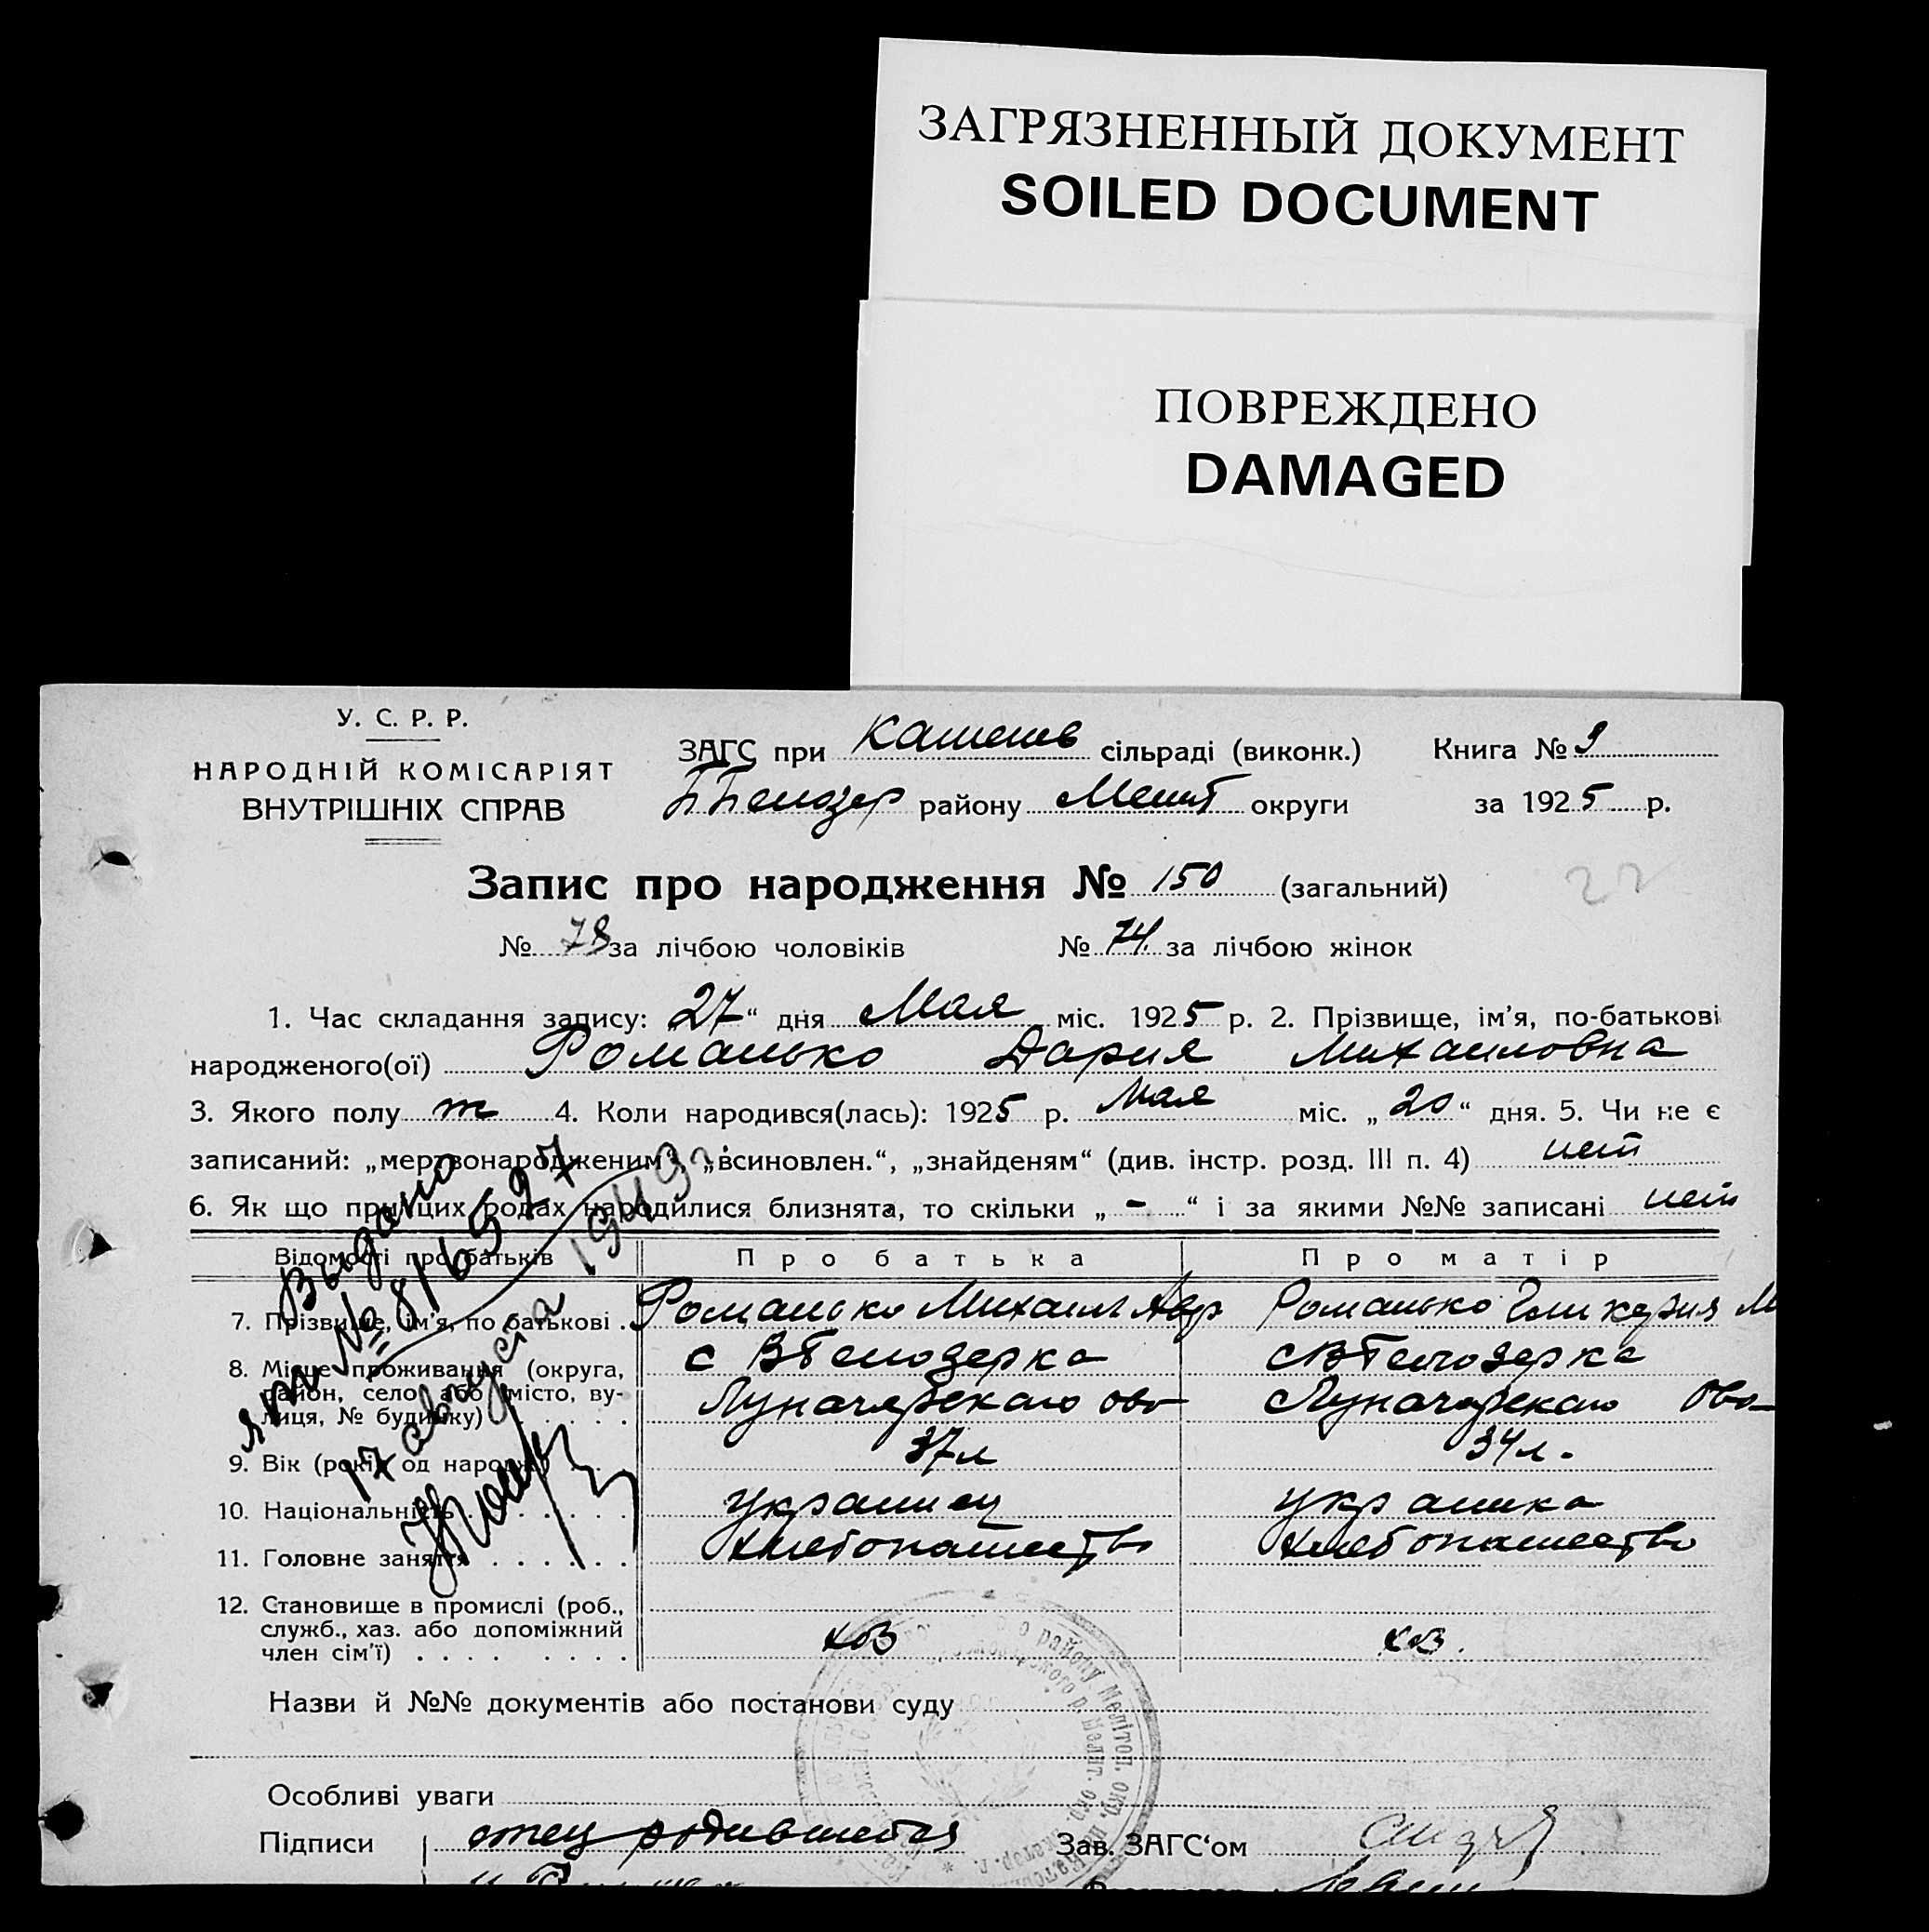 ЗАГРЯЗНЕННЫЙ ДОКУМЕНТ
SOILED DOCUMENT
ПОВРЕЖДЕНО
DAMAGED
У. С. Р. Р.
НАРОДНІЙ КОМІСАРІЯТ
ВНУТРІШНІХ СПРАВ
ЗАГС при сільраді (виконк.) Книга № 9
району Мелит округи за 1925 р.
Запис про народження № 150 (загальний)
22
№ за лічбою чоловіків № 74 за лічбою жінок
1. Час складання запису: 27“ дня Мая міс. 1925 р. 2. Прізвище, ім’я, по-батькові
народженого(ої) Романько Дария Михаиловна
3. Якого полу ж 4. Коли народився(лась): 1925 р. Мая міс. „20“ дня. 5. Чи не є
записаний: „мертвонародженим“, „всиновлен.“, „знайденям“ (див. інстр. розд. III п. 4) нет
6. Як що при цих родах народилися близнята, то скільки „-“ і за якими №№ записані нет
Відомості про батьків Про батька Про матір
7. Прізвище, ім’я, по батькові . Романько Михаил Авр Романько Гликерия М
8. Місце проживання (округа, с ВБелозерка с ВБелозерка
район, село або місто, ву-
лиця, № будинку) . . . . . Луначарскаго ово Луначарскаго ово
9. Вік (років од народж.) . . . 37л 34л.
10. Національність . . . . . . . украинец украинка
11. Головне заняття . . . . . . хлебопашество хлебопашество
12. Становище в промислі (роб.,
служб., хаз. або допоміжний
член сім’ї) . . . . . . . . хоз хоз.
Выдано
№ 8/16527
17 августа 1943
Назви й №№ документів або постанови суду
Особливі уваги
Підписи отец родившейся Зав. ЗАГС‘ом